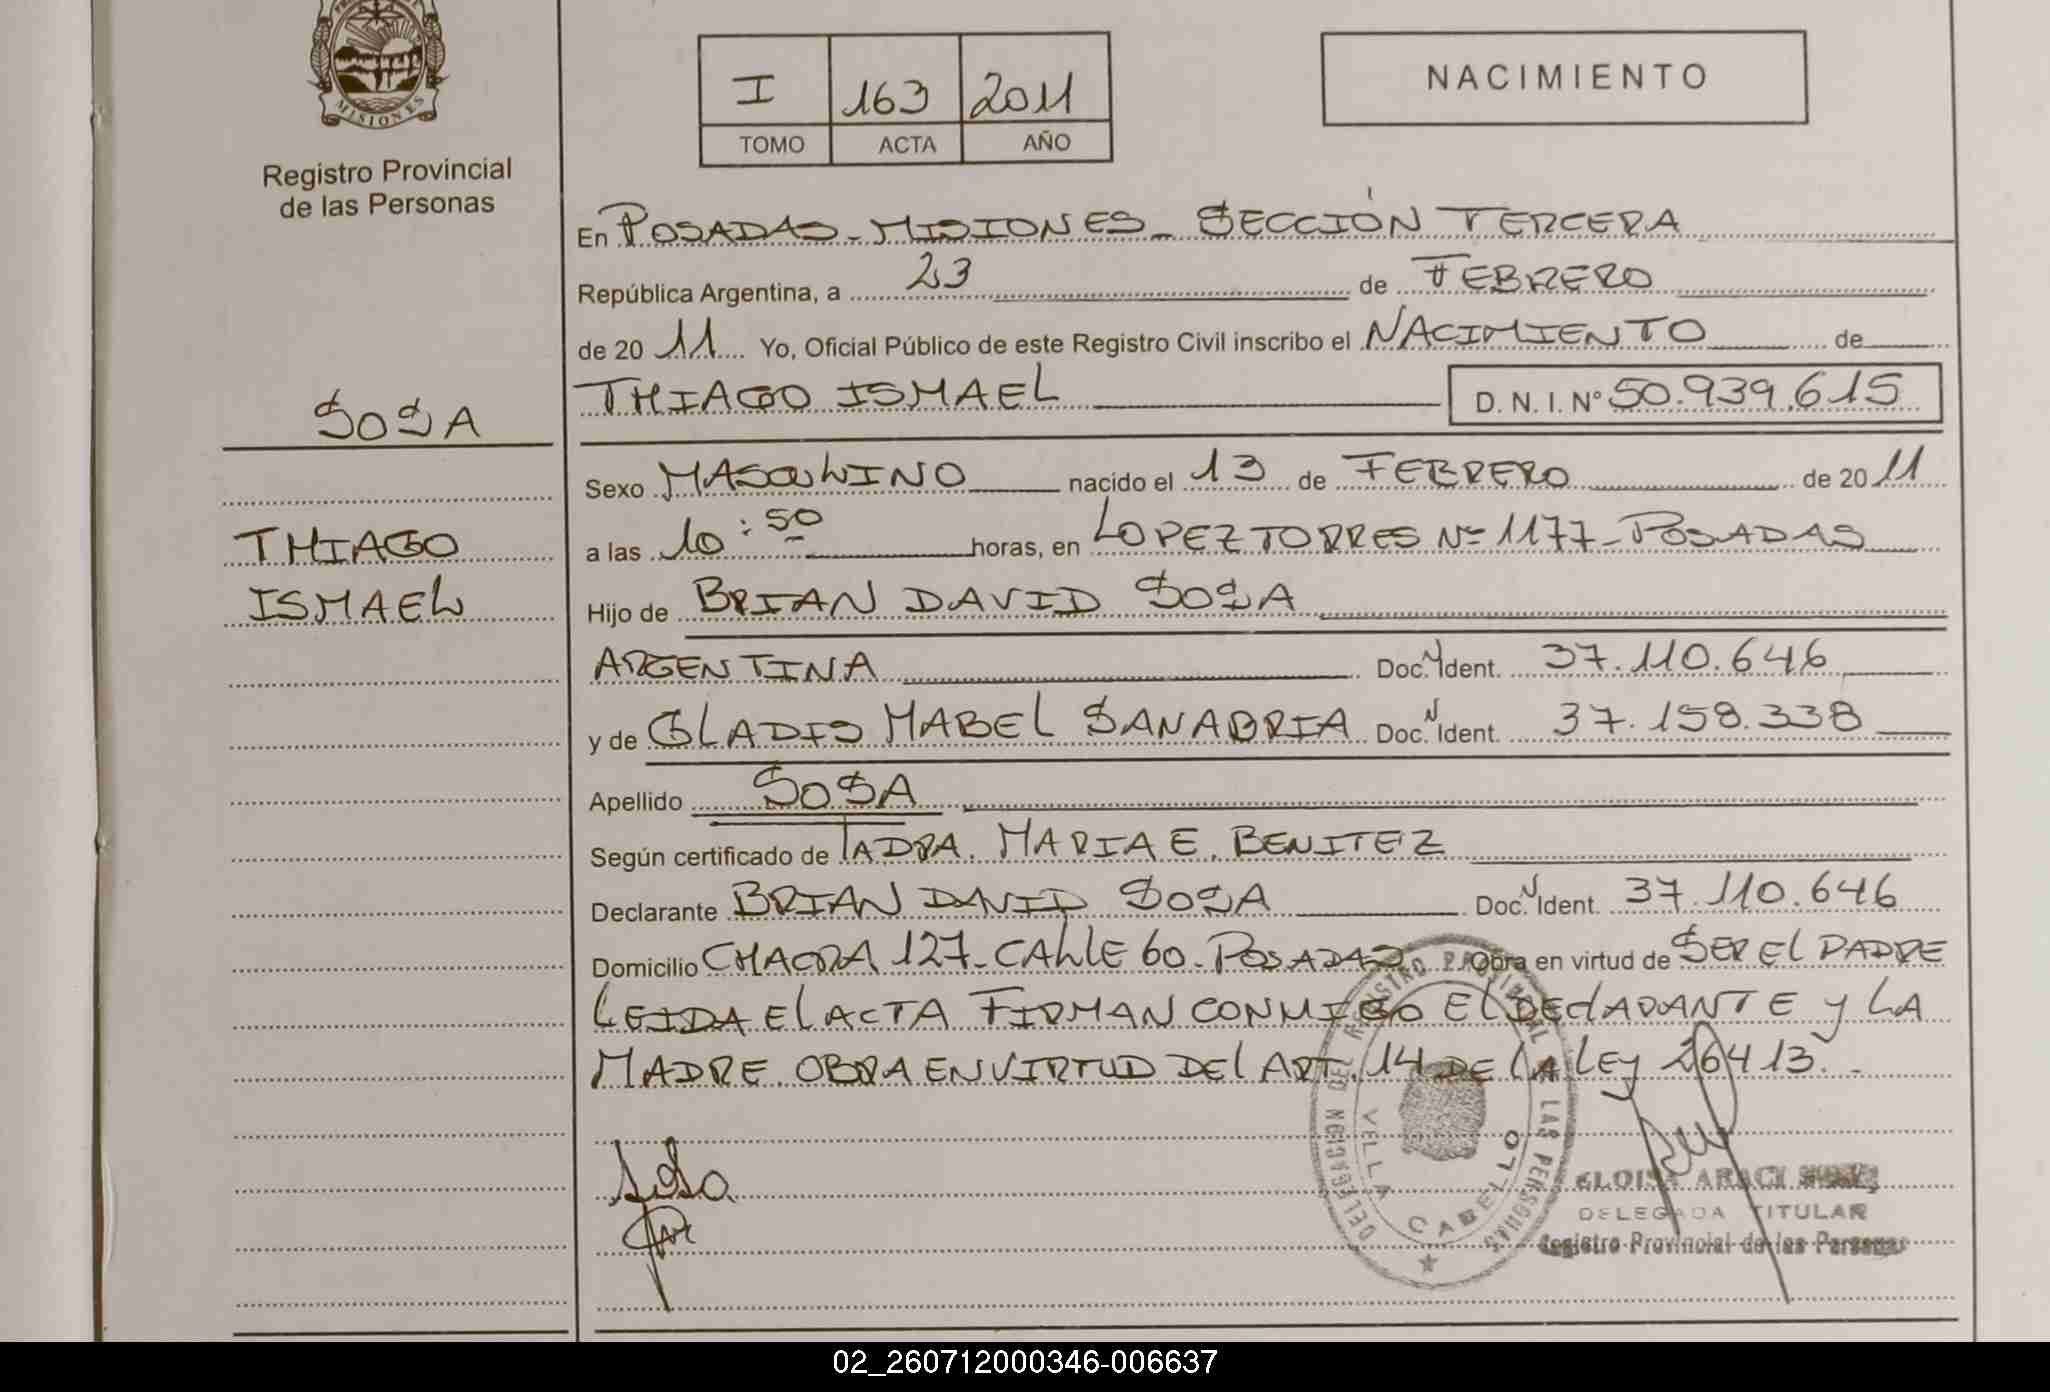 MISIONES
Registro Provincial
de las Personas
I 163 2011
TOMO ACTA AÑO
NACIMIENTO
En POSADAS - MISIONES - SECCIÓN TERCERA
República Argentina, a 23 de FEBRERO
de 20 11 Yo, Oficial Público de este Registro Civil inscribo el NACIMIENTO de
THIAGO ISMAEL D. N. I. Nº 50.939.615
SOSA
THIAGO
ISMAEL
Sexo MASCULINO nacido el 13 de FEBRERO de 20 11
a las 10:50 horas, en LOPEZ TORRES Nº 1177 - POSADAS
Hijo de BRIAN DAVID SOSA
ARGENTINA Doc. N Ident. 37.110.646
y de GLADIS MABEL SANABRIA Doc. N Ident. 37.158.338
Apellido SOSA
Según certificado de LA DRA. MARIA E. BENITEZ
Declarante BRIAN DAVID SOSA Doc. N Ident. 37.110.646
Domicilio CHACRA 127 - CALLE 60 - POSADAS Obra en virtud de SER EL PADRE
LEIDA EL ACTA FIRMAN CONMIGO EL DECLARANTE Y LA
MADRE. OBRA EN VIRTUD DEL ART. 14 DE LA LEY 26413. -
Sosa
DELEGACION DEL REGISTRO PROVINCIAL DE LAS PERSONAS
VILLA CABELLO
ELOISA ARACI
DELEGADA TITULAR
Registro Provincial de las Personas
02_260712000346-006637